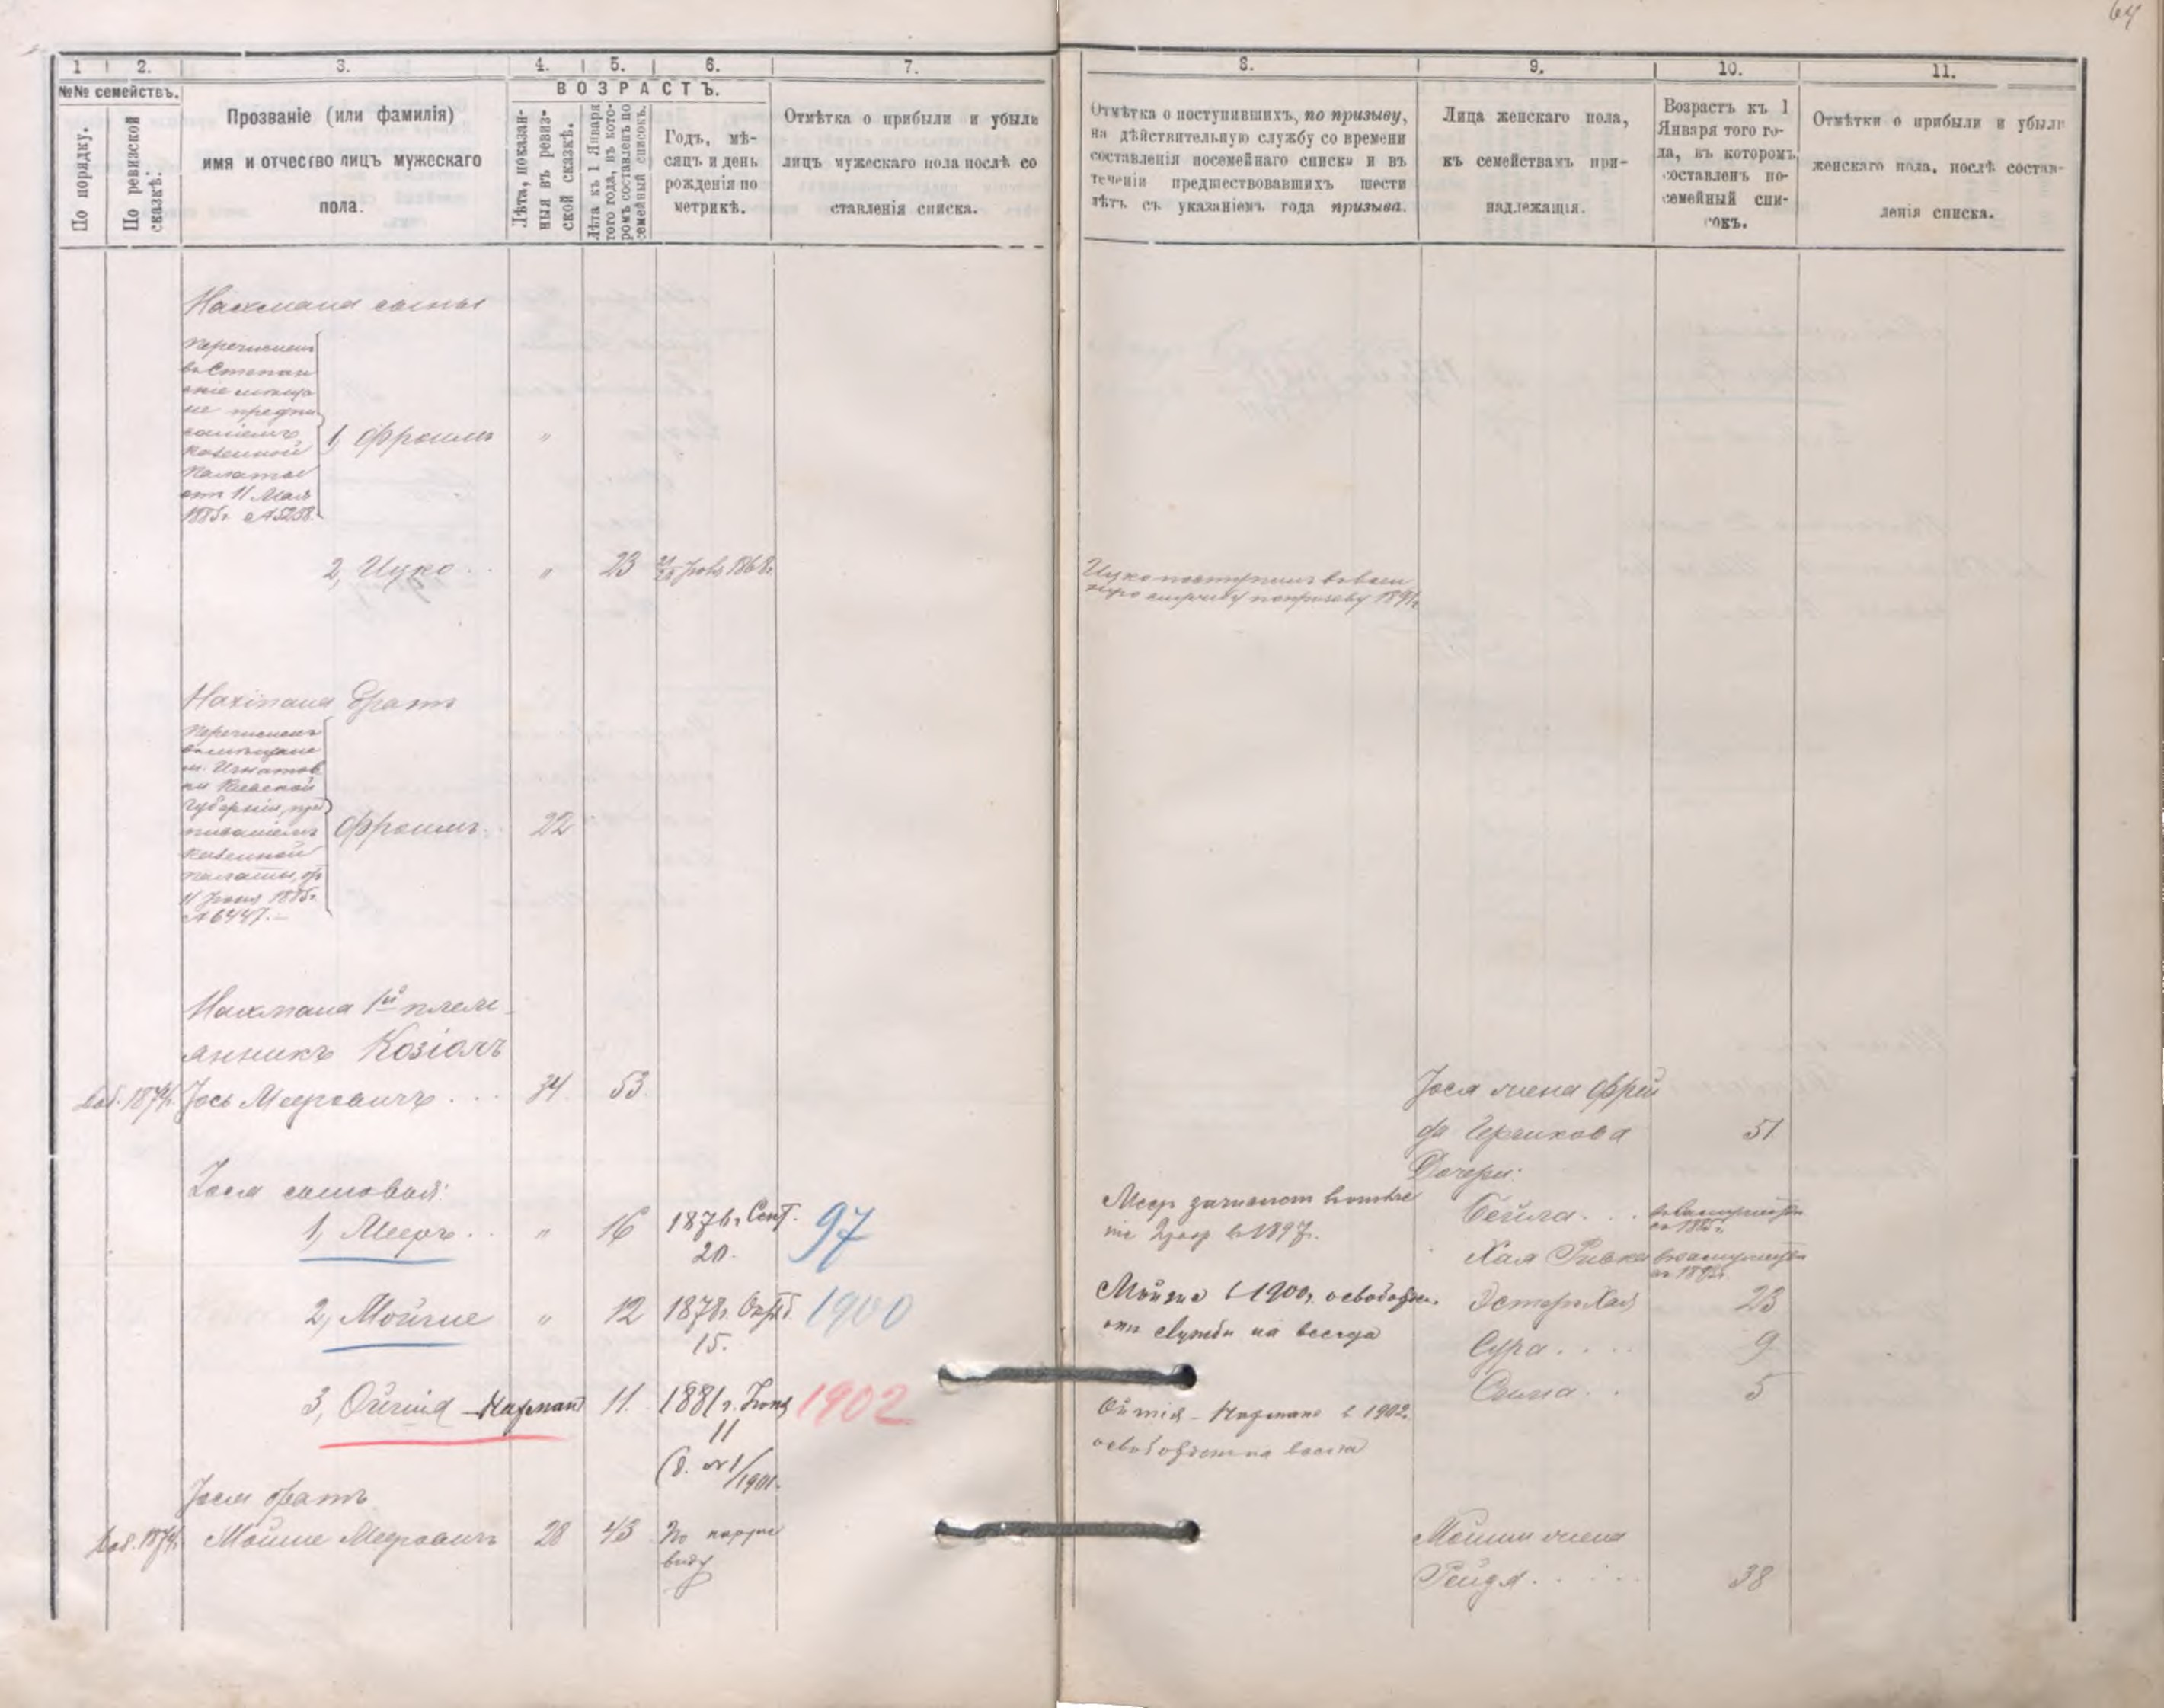 64
1
2.
3.
4.
5.
6.
7.
№№ семействъ.
ВОЗРАСТЪ.
По порядку.
По ревизской
сказкѣ.
Прозваніе (или фамилія)
имя и отчество лицъ мужескаго
пола.
Лѣта, показан-
ныя въ ревиз-
ской сказкѣ.
Лѣта къ 1 Января
того года, въ кото-
ромъ составленъ по
семейный списокъ.
Годъ, мѣ-
сяцъ и день
рожденія по
метрикѣ.
Отмѣтка о прибыли и убыли
лицъ мужескаго пола послѣ со
ставленія списка.
8.
9.
10.
11.
Отмѣтка о поступившихъ, по призыву,
на дѣйствительную службу со времени
составленія посемейнаго списка и въ
теченіи предшествовавшихъ шести
лѣтъ съ указаніемъ года призыва.
Лица женскаго пола,
къ семействамъ при-
надлежащія.
Возрастъ къ 1
Января того го-
да, въ которомъ
составленъ по-
семейный спи-
сокъ.
Отмѣтки о прибыли и убыли
женскаго пола, послѣ состав-
ленія списка.
Нахмана сыны
Перечисленъ
въ Степан
скіе мѣща
не предпи
саніемъ
Казенной
Палаты
отъ 11 Мая
1885г. №5258.
1, Фроимъ "
2, Ицко . . " 23 1868г.
Ицко поступилъ въ воен
ную службу по призыву 1891г.
Нахмана братъ
Перечисленъ
въ мѣщане
м. Игнатов
ки Кіевской
губерніи, пред
писаніемъ
Казенной
палаты, отъ
11 Іюня 1885г.
№6447.
Фроимъ. 22
Нахмана 1й племя-
анникъ Козіолъ
Доб. 1874г. Іось Мееровичъ . . . 34 53
Іося жена Фрей
да Гершкова 51
Дочери:
Іося сыновья:
1, Мееръ . . " 16 1876г. Сент.
20.
97
Мееръ зачисленъ в
в 1897г.
Бейла . . .
Хая Ривка
2, Мойше " 12 1878г. Октяб.
15.
1900
Мойше в 1900г. освобожден.
отъ службы на всегда
Эстеръ Хая 23
Сура . . . . 9
3, Ойшія-Нахман 11. 1881г. Іюня
11
1902
Ойшія-Нахмана в 1902г.
освобожденъ на всегда
5
1901.
Іося братъ
Доб. 1874г. Мойше Мееровичъ 28 43 По наруж
виду
Мойши жена
Рейзя . . . . . 38